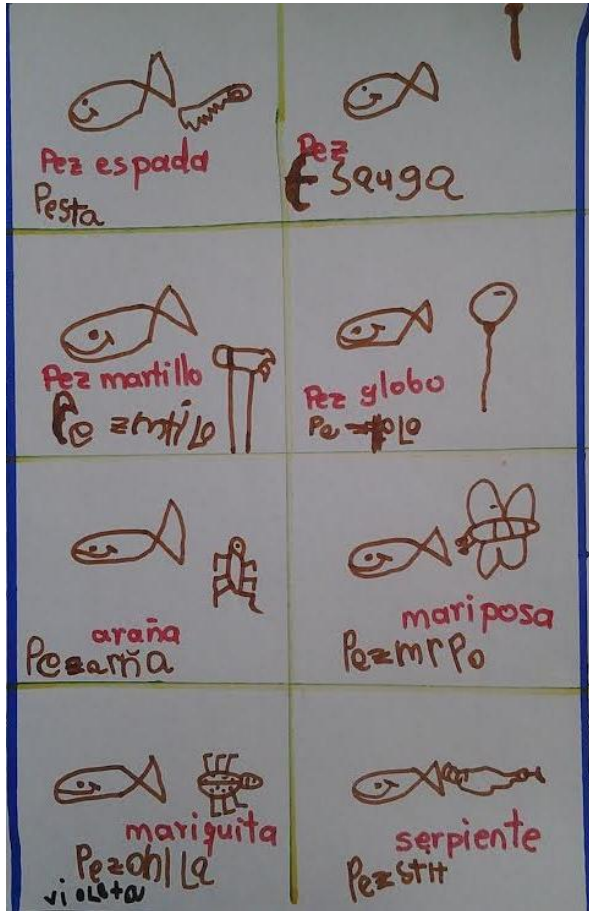 Pez espada
Pesta
Pez
Esauga
Pez martillo
Pe zmtilo
Pez globo
Pe zloLo
araña
Pezarña
mariposa
Pezmrpo
mariquita
PezohlLa
violeta
serpiente
Pezstit